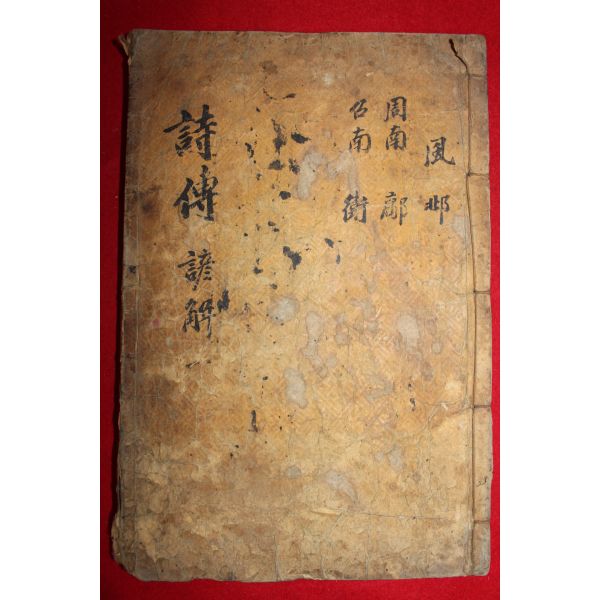 詩傳 諺解 一
風 邶
周南 鄘
召南 衛